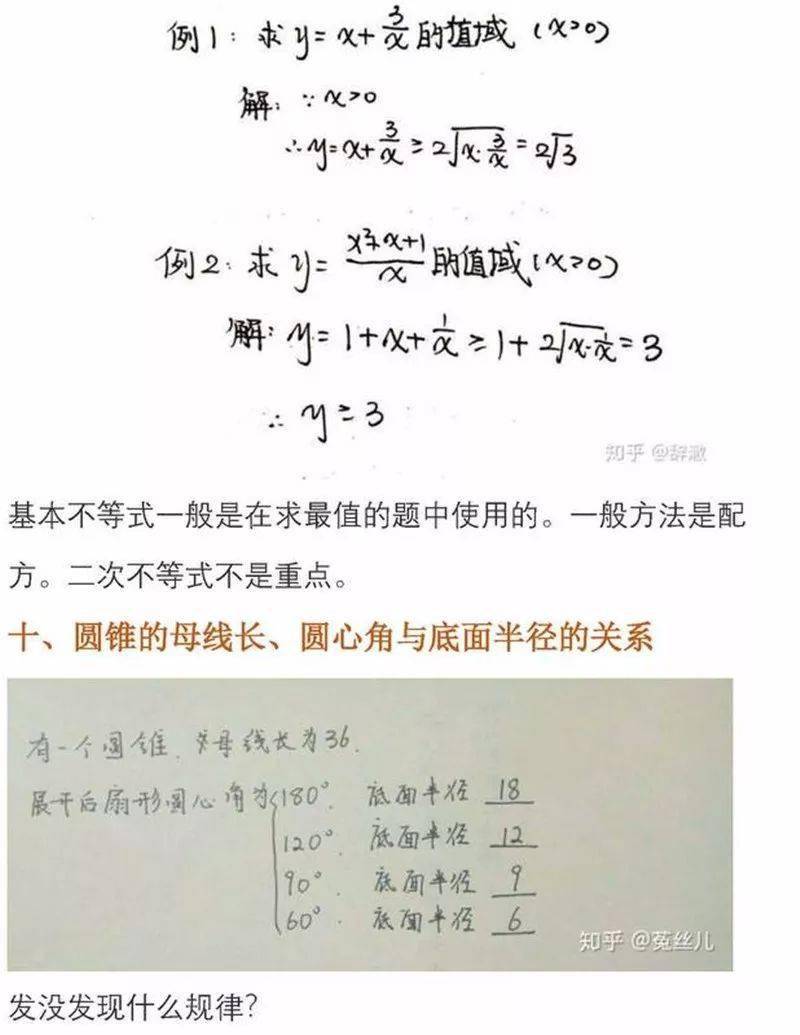 例1：求 y=x+3/x 的值域（x>0）
解：∵x>0
∴y=x+3/x≥2√(x·3/x)=2√3
例2：求 y=(x²+x+1)/x 的值域（x>0）
解：y=1+x+1/x≥1+2√(x·1/x)=3
∴y≥3
知乎 @辞澈
基本不等式一般是在求最值的题中使用的。一般方法是配
方。二次不等式不是重点。
十、圆锥的母线长、圆心角与底面半径的关系
有一个圆锥，母线长为36.
展开后扇形圆心角为{180°. 底面半径 18
120°. 底面半径 12
90°. 底面半径 9
60°. 底面半径 6
知乎 @菟丝儿
发没发现什么规律？